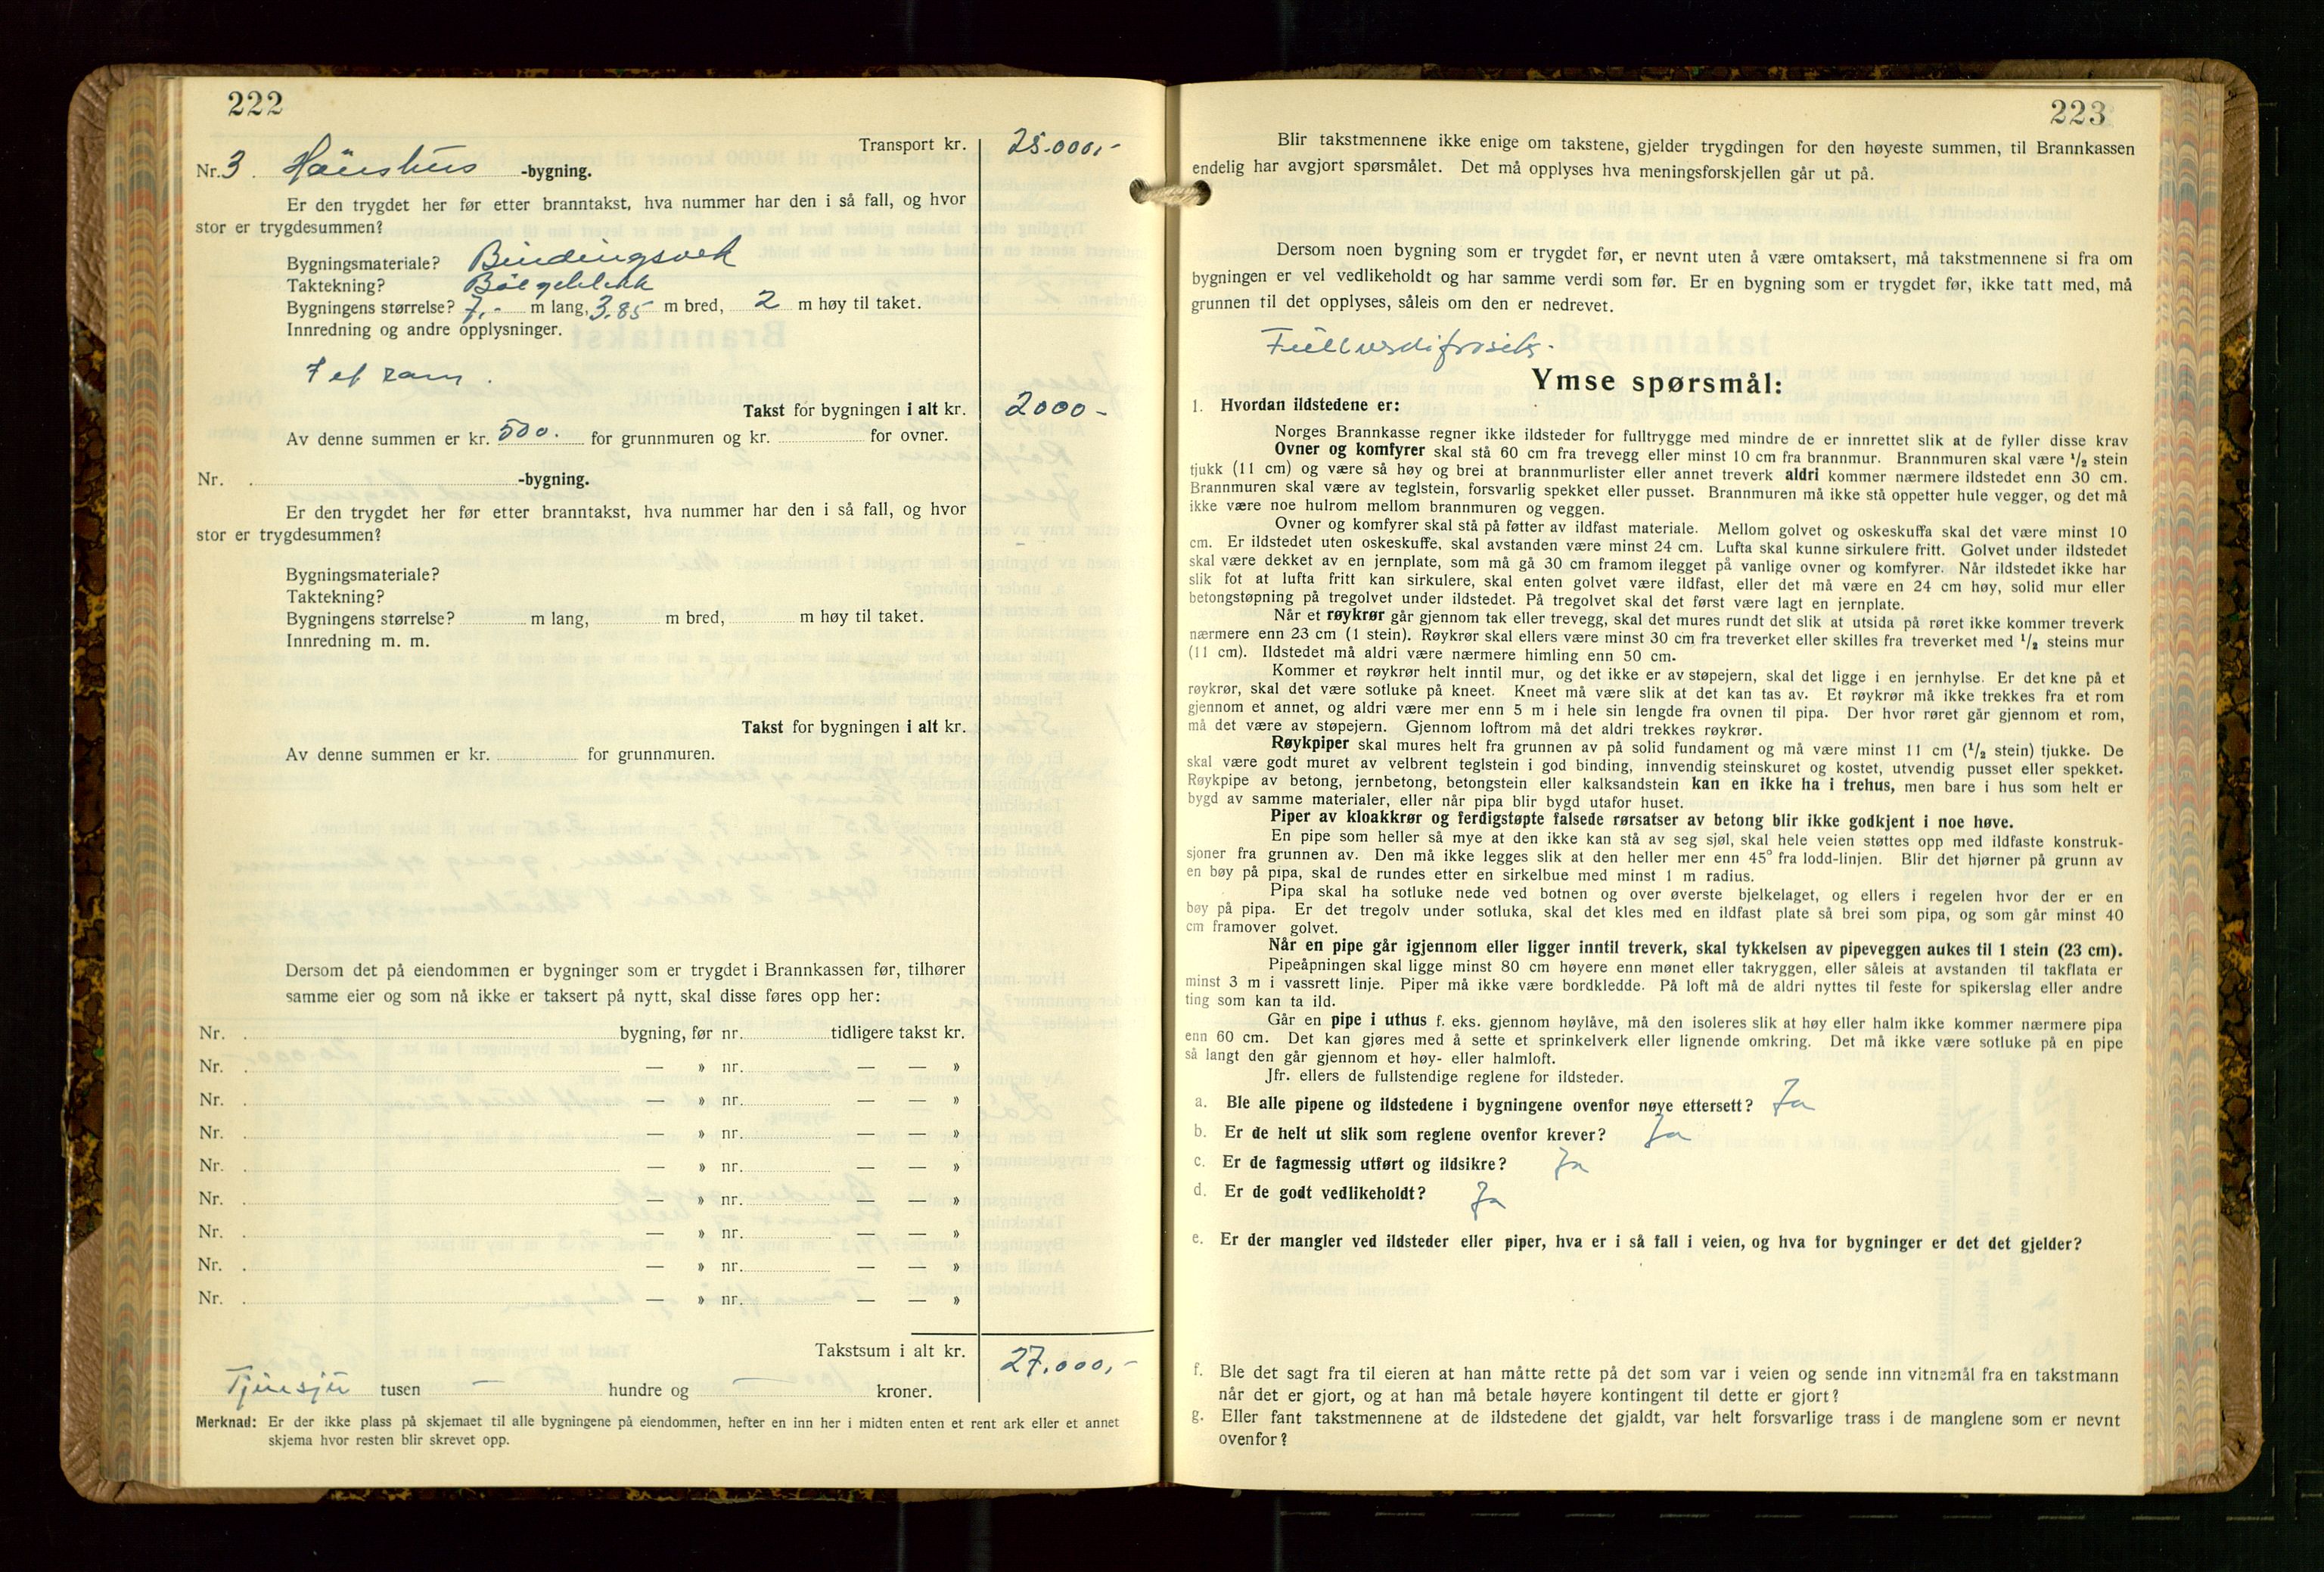 222
Transport kr. 25.000,-
Nr. 3. Hønshus -bygning.
Er den trygdet her før etter branntakst, hva nummer har den i så fall, og hvor
stor er trygdesummen?
Bygningsmateriale? Bindingsverk
Taktekning? Bølgeblikk
Bygningens størrelse? 7,- m lang, 3,85 m bred, 2 m høy til taket.
Innredning og andre opplysninger.
I et rom.
Takst for bygningen i alt kr. 2000-
Av denne summen er kr. 500. for grunnmuren og kr. for ovner.
Nr. -bygning.
Er den trygdet her før etter branntakst, hva nummer har den i så fall, og hvor
stor er trygdesummen?
Bygningsmateriale?
Taktekning?
Bygningens størrelse? m lang, m bred, m høy til taket.
Innredning m. m.
Takst for bygningen i alt kr.
Av denne summen er kr. for grunnmuren.
Dersom det på eiendommen er bygninger som er trygdet i Brannkassen før, tilhører
samme eier og som nå ikke er taksert på nytt, skal disse føres opp her:
Nr. . bygning, før nr. tidligere takst kr.
Nr. . — » nr. — — »
Nr. . — » nr. — — »
Nr. . — » nr. — — »
Nr. . — » nr. — — »
Nr. . — » nr. — — »
Nr. . — » nr. — — »
Nr. . — » nr. — — »
Nr. . — » nr. — — »
Takstsum i alt kr. 27.000,-
Tjuesju tusen — hundre og — kroner.
Merknad: Er der ikke plass på skjemaet til alle bygningene på eiendommen, hefter en inn her i midten enten et rent ark eller et annet
skjema hvor resten blir skrevet opp.
223
Blir takstmennene ikke enige om takstene, gjelder trygdingen for den høyeste summen, til Brannkassen
endelig har avgjort spørsmålet. Det må opplyses hva meningsforskjellen går ut på.
Dersom noen bygning som er trygdet før, er nevnt uten å være omtaksert, må takstmennene si fra om
bygningen er vel vedlikeholdt og har samme verdi som før. Er en bygning som er trygdet før, ikke tatt med, må
grunnen til det opplyses, såleis om den er nedrevet.
Fullverdifrosik.
Ymse spørsmål:
1. Hvordan ildstedene er:
Norges Brannkasse regner ikke ildsteder for fulltrygge med mindre de er innrettet slik at de fyller disse krav
Ovner og komfyrer skal stå 60 cm fra trevegg eller minst 10 cm fra brannmur. Brannmuren skal være 1/2 stein
tjukk (11 cm) og være så høy og brei at brannmurlister eller annet treverk aldri kommer nærmere ildstedet enn 30 cm.
Brannmuren skal være av teglstein, forsvarlig spekket eller pusset. Brannmuren må ikke stå oppetter hule vegger, og det må
ikke være noe hulrom mellom brannmuren og veggen.
Ovner og komfyrer skal stå på føtter av ildfast materiale. Mellom golvet og oskeskuffa skal det være minst 10
cm. Er ildstedet uten oskeskuffe, skal avstanden være minst 24 cm. Lufta skal kunne sirkulere fritt. Golvet under ildstedet
skal være dekket av en jernplate, som må gå 30 cm framom ilegget på vanlige ovner og komfyrer. Når ildstedet ikke har
slik fot at lufta fritt kan sirkulere, skal enten golvet være ildfast, eller det må være en 24 cm høy, solid mur eller
betongstøpning på tregolvet under ildstedet. På tregolvet skal det først være lagt en jernplate.
Når et røykrør går gjennom tak eller trevegg, skal det mures rundt det slik at utsida på røret ikke kommer treverk
nærmere enn 23 cm (1 stein). Røykrør skal ellers være minst 30 cm fra treverket eller skilles fra treverket med 1/2 steins mur
(11 cm). Ildstedet må aldri være nærmere himling enn 50 cm.
Kommer et røykrør helt inntil mur, og det ikke er av støpejern, skal det ligge i en jernhylse. Er det kne på et
røykrør, skal det være sotluke på kneet. Kneet må være slik at det kan tas av. Et røykrør må ikke trekkes fra et rom
gjennom et annet, og aldri være mer enn 5 m i hele sin lengde fra ovnen til pipa. Der hvor røret går gjennom et rom,
må det være av støpejern. Gjennom loftrom må det aldri trekkes røykrør.
Røykpiper skal mures helt fra grunnen av på solid fundament og må være minst 11 cm (1/2 stein) tjukke. De
skal være godt muret av velbrent teglstein i god binding, innvendig steinskuret og kostet, utvendig pusset eller spekket.
Røykpipe av betong, jernbetong, betongstein eller kalksandstein kan en ikke ha i trehus, men bare i hus som helt er
bygd av samme materialer, eller når pipa blir bygd utafor huset.
Piper av kloakkrør og ferdigstøpte falsede rørsatser av betong blir ikke godkjent i noe høve.
En pipe som heller så mye at den ikke kan stå av seg sjøl, skal hele veien støttes opp med ildfaste konstruk-
sjoner fra grunnen av. Den må ikke legges slik at den heller mer enn 45° fra lodd-linjen. Blir det hjørner på grunn av
en bøy på pipa, skal de rundes etter en sirkelbue med minst 1 m radius.
Pipa skal ha sotluke nede ved botnen og over øverste bjelkelaget, og ellers i regelen hvor der er en
bøy på pipa. Er det tregolv under sotluka, skal det kles med en ildfast plate så brei som pipa, og som går minst 40
cm framover golvet.
Når en pipe går igjennom eller ligger inntil treverk, skal tykkelsen av pipeveggen aukes til 1 stein (23 cm).
Pipeåpningen skal ligge minst 80 cm høyere enn mønet eller takryggen, eller såleis at avstanden til takflata er
minst 3 m i vassrett linje. Piper må ikke være bordkledde. På loft må de aldri nyttes til feste for spikerslag eller andre
ting som kan ta ild.
Går en pipe i uthus f. eks. gjennom høylåve, må den isoleres slik at høy eller halm ikke kommer nærmere pipa
enn 60 cm. Det kan gjøres med å sette et sprinkelverk eller lignende omkring. Det må ikke være sotluke på en pipe
så langt den går gjennom et høy- eller halmloft.
Jfr. ellers de fullstendige reglene for ildsteder.
a. Ble alle pipene og ildstedene i bygningene ovenfor nøye ettersett? Ja
b. Er de helt ut slik som reglene ovenfor krever? Ja
c. Er de fagmessig utført og ildsikre? Ja
d. Er de godt vedlikeholdt? Ja
e. Er der mangler ved ildsteder eller piper, hva er i så fall i veien, og hva for bygninger er det det gjelder?
f. Ble det sagt fra til eieren at han måtte rette på det som var i veien og sende inn vitnemål fra en takstmann
når det er gjort, og at han må betale høyere kontingent til dette er gjort?
g. Eller fant takstmennene at de ildstedene det gjaldt, var helt forsvarlige trass i de manglene som er nevnt
ovenfor?